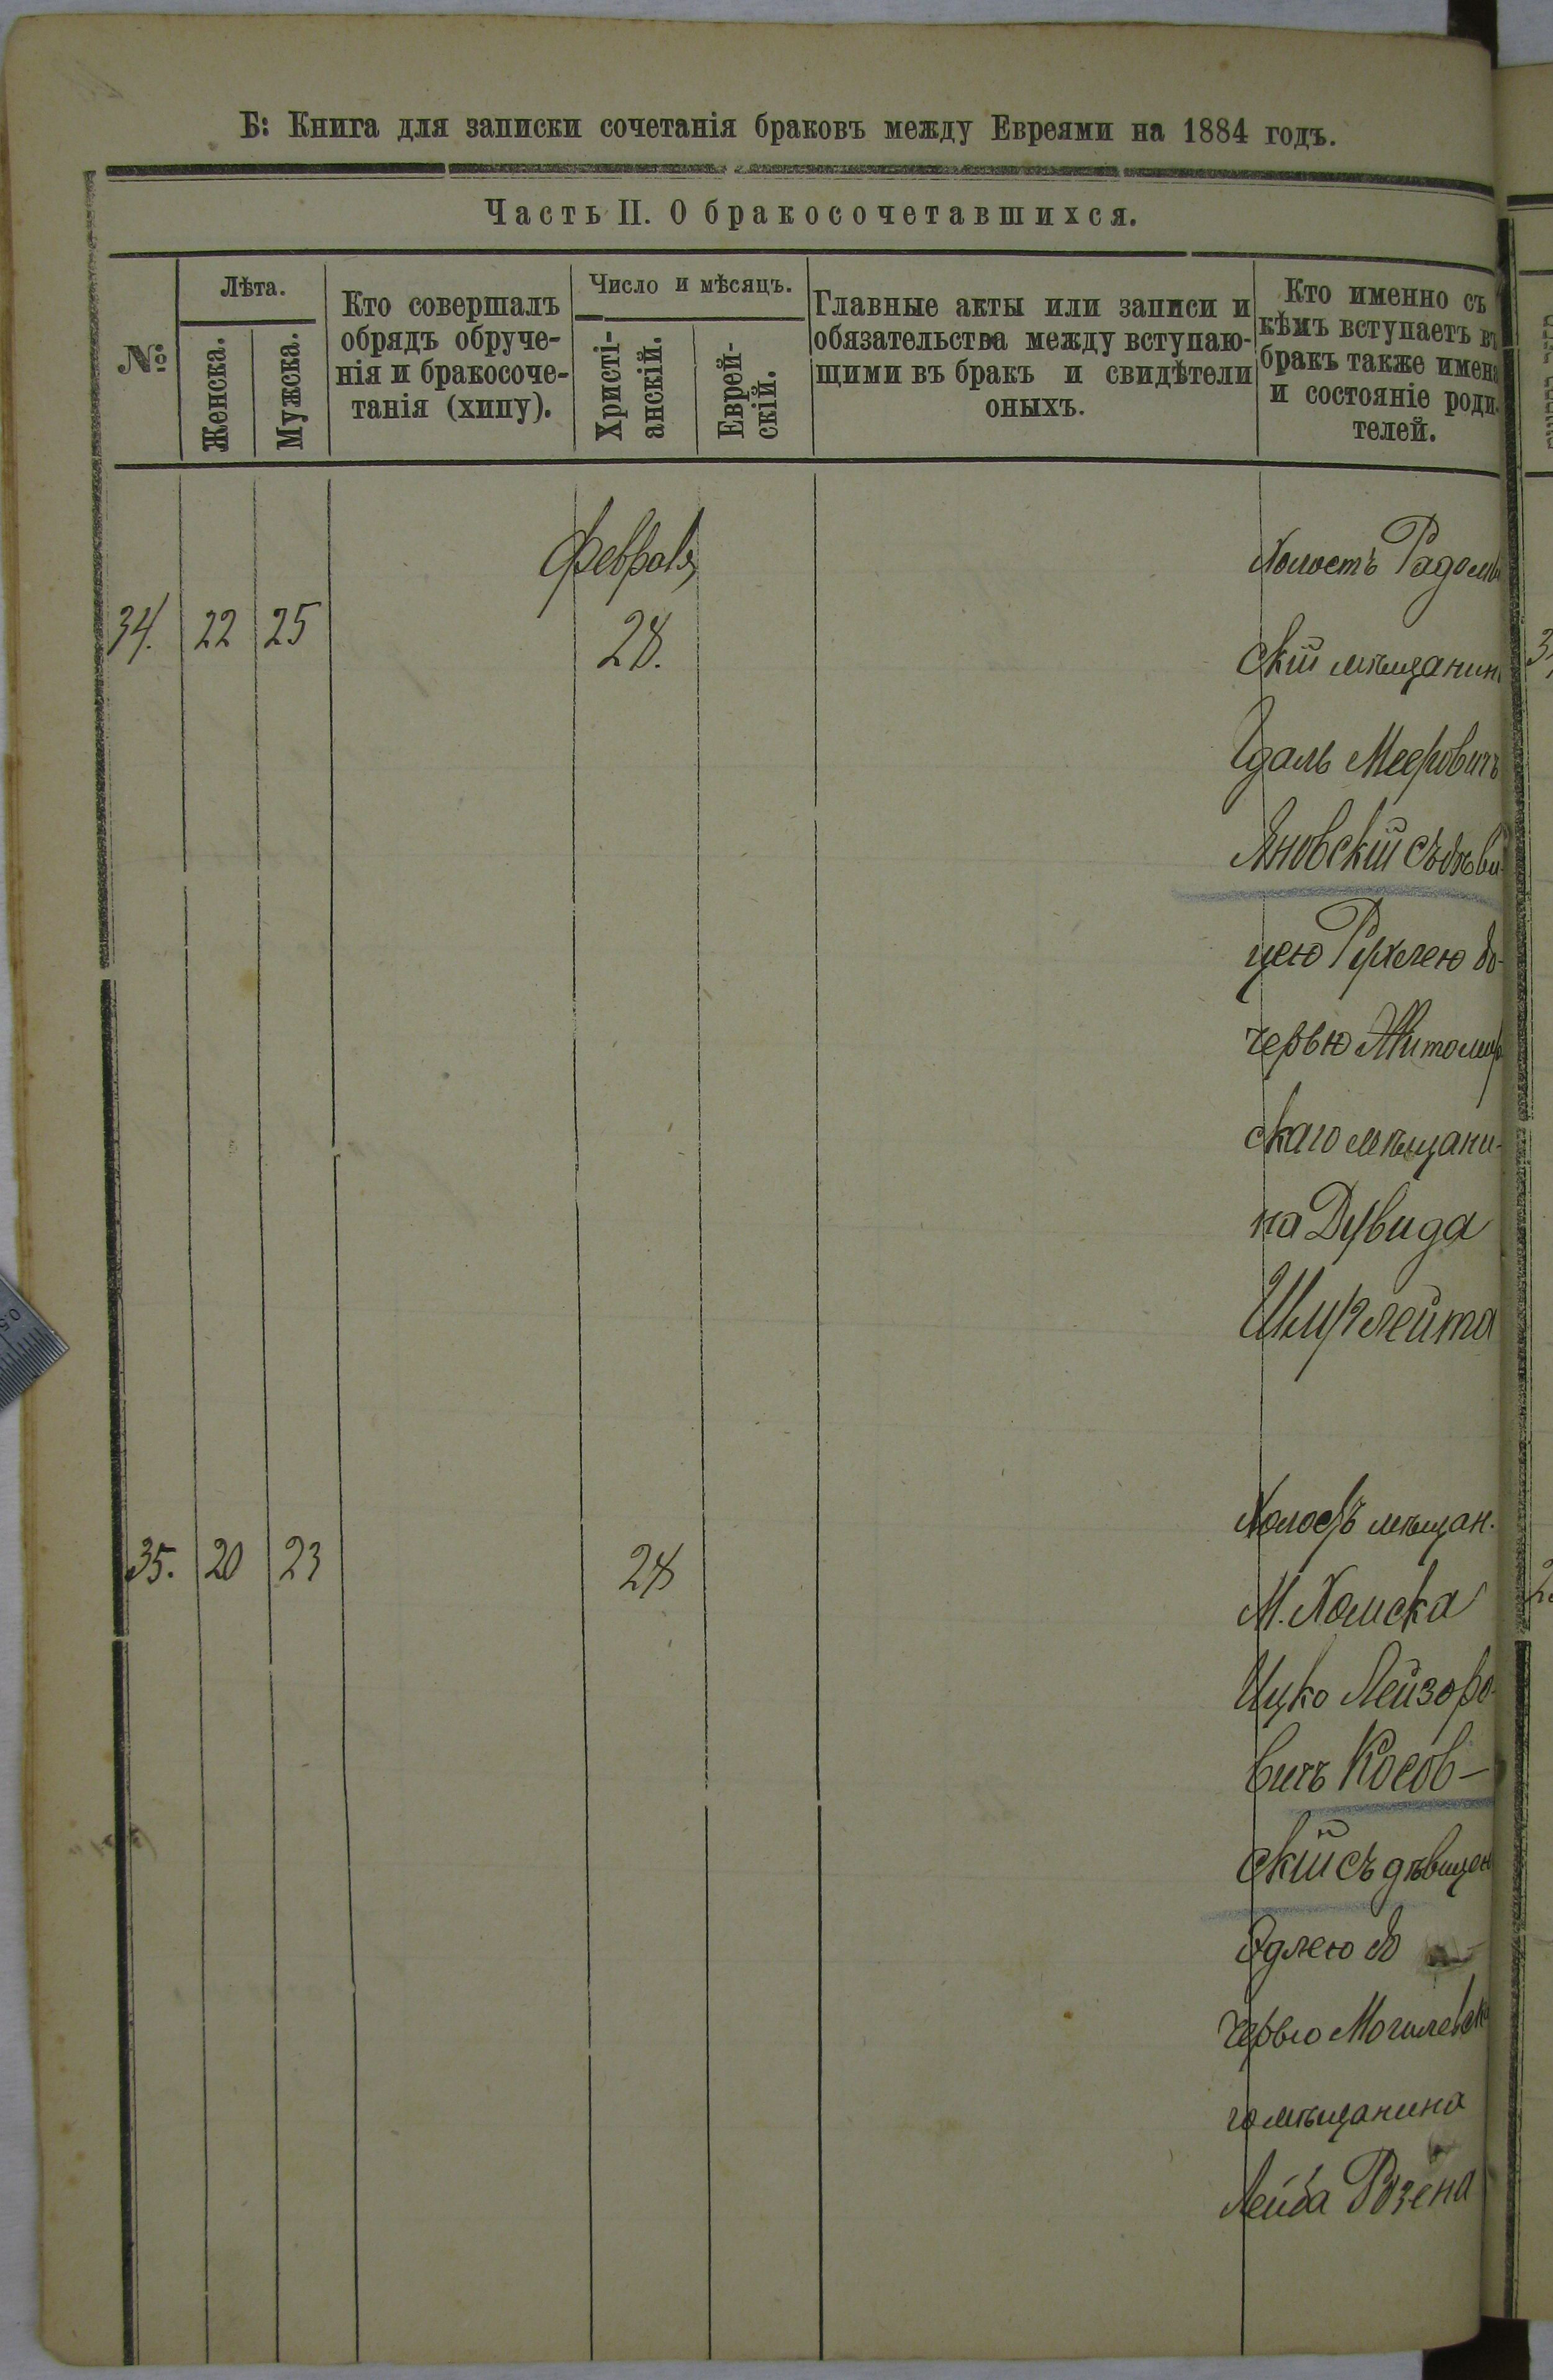 Б: Книга для записки сочетанія браковъ между Евреями на 1884 годъ.
Часть II. О бракосочетавшихся.
№
Лѣта.
Женска.
Мужска.
Кто совершалъ
обрядъ обруче-
нія и бракосоче-
танія (хипу).
Число и мѣсяцъ.
Христі-
анскій.
Еврей-
скій.
Главные акты или записи и
обязательства между вступаю-
щими въ бракъ и свидѣтели
оныхъ.
Кто именно съ
кѣмъ вступаетъ въ
бракъ также имена
и состояніе роди-
телей.
Февраля
34. 22 25 28.
Холостъ Радомы
скій мѣщанинъ
Гдаль Мееровичъ
Яновскій съ дѣви-
цею Рухлею до-
черью Житомир
скаго мѣщани-
на Дувида
35. 20 23 28
Холостъ мѣщан.
М. Хомска
Ицко Лейзоро-
вичъ Косов-
скій съ дѣвицею
Эдлею до
черью Могилевска
го мѣщанина
Лейба Розена